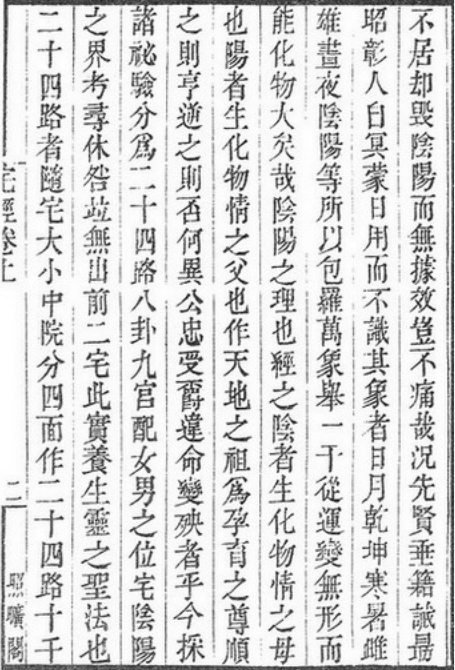 不居却毀陰陽而無據效豈不痛哉況先賢垂籍誡最
昭彰人自冥蒙日用而不識其象者日月乾坤寒暑雌
雄晝夜陰陽等所以包羅萬象舉一千從運變無形而
能化物大矣哉陰陽之理也經之陰者生化物情之母
也陽者生化物情之父也作天地之祖為孕育之尊順
之則亨逆之則否何異公忠受爵違命變殃者乎今採
諸祕驗分為二十四路八卦九宮配女男之位宅陰陽
之界考尋休咎竝無出前二宅此實養生靈之聖法也
二十四路者隨宅大小中院分四面作二十四路十千
宅經卷上
二
照曠閣